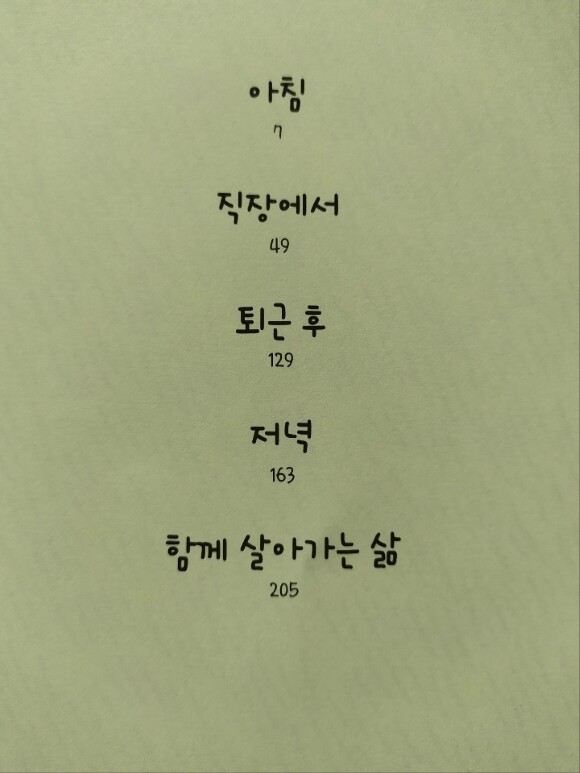 아침
7
직장에서
49
퇴근 후
129
저녁
163
함께 살아가는 삶
205